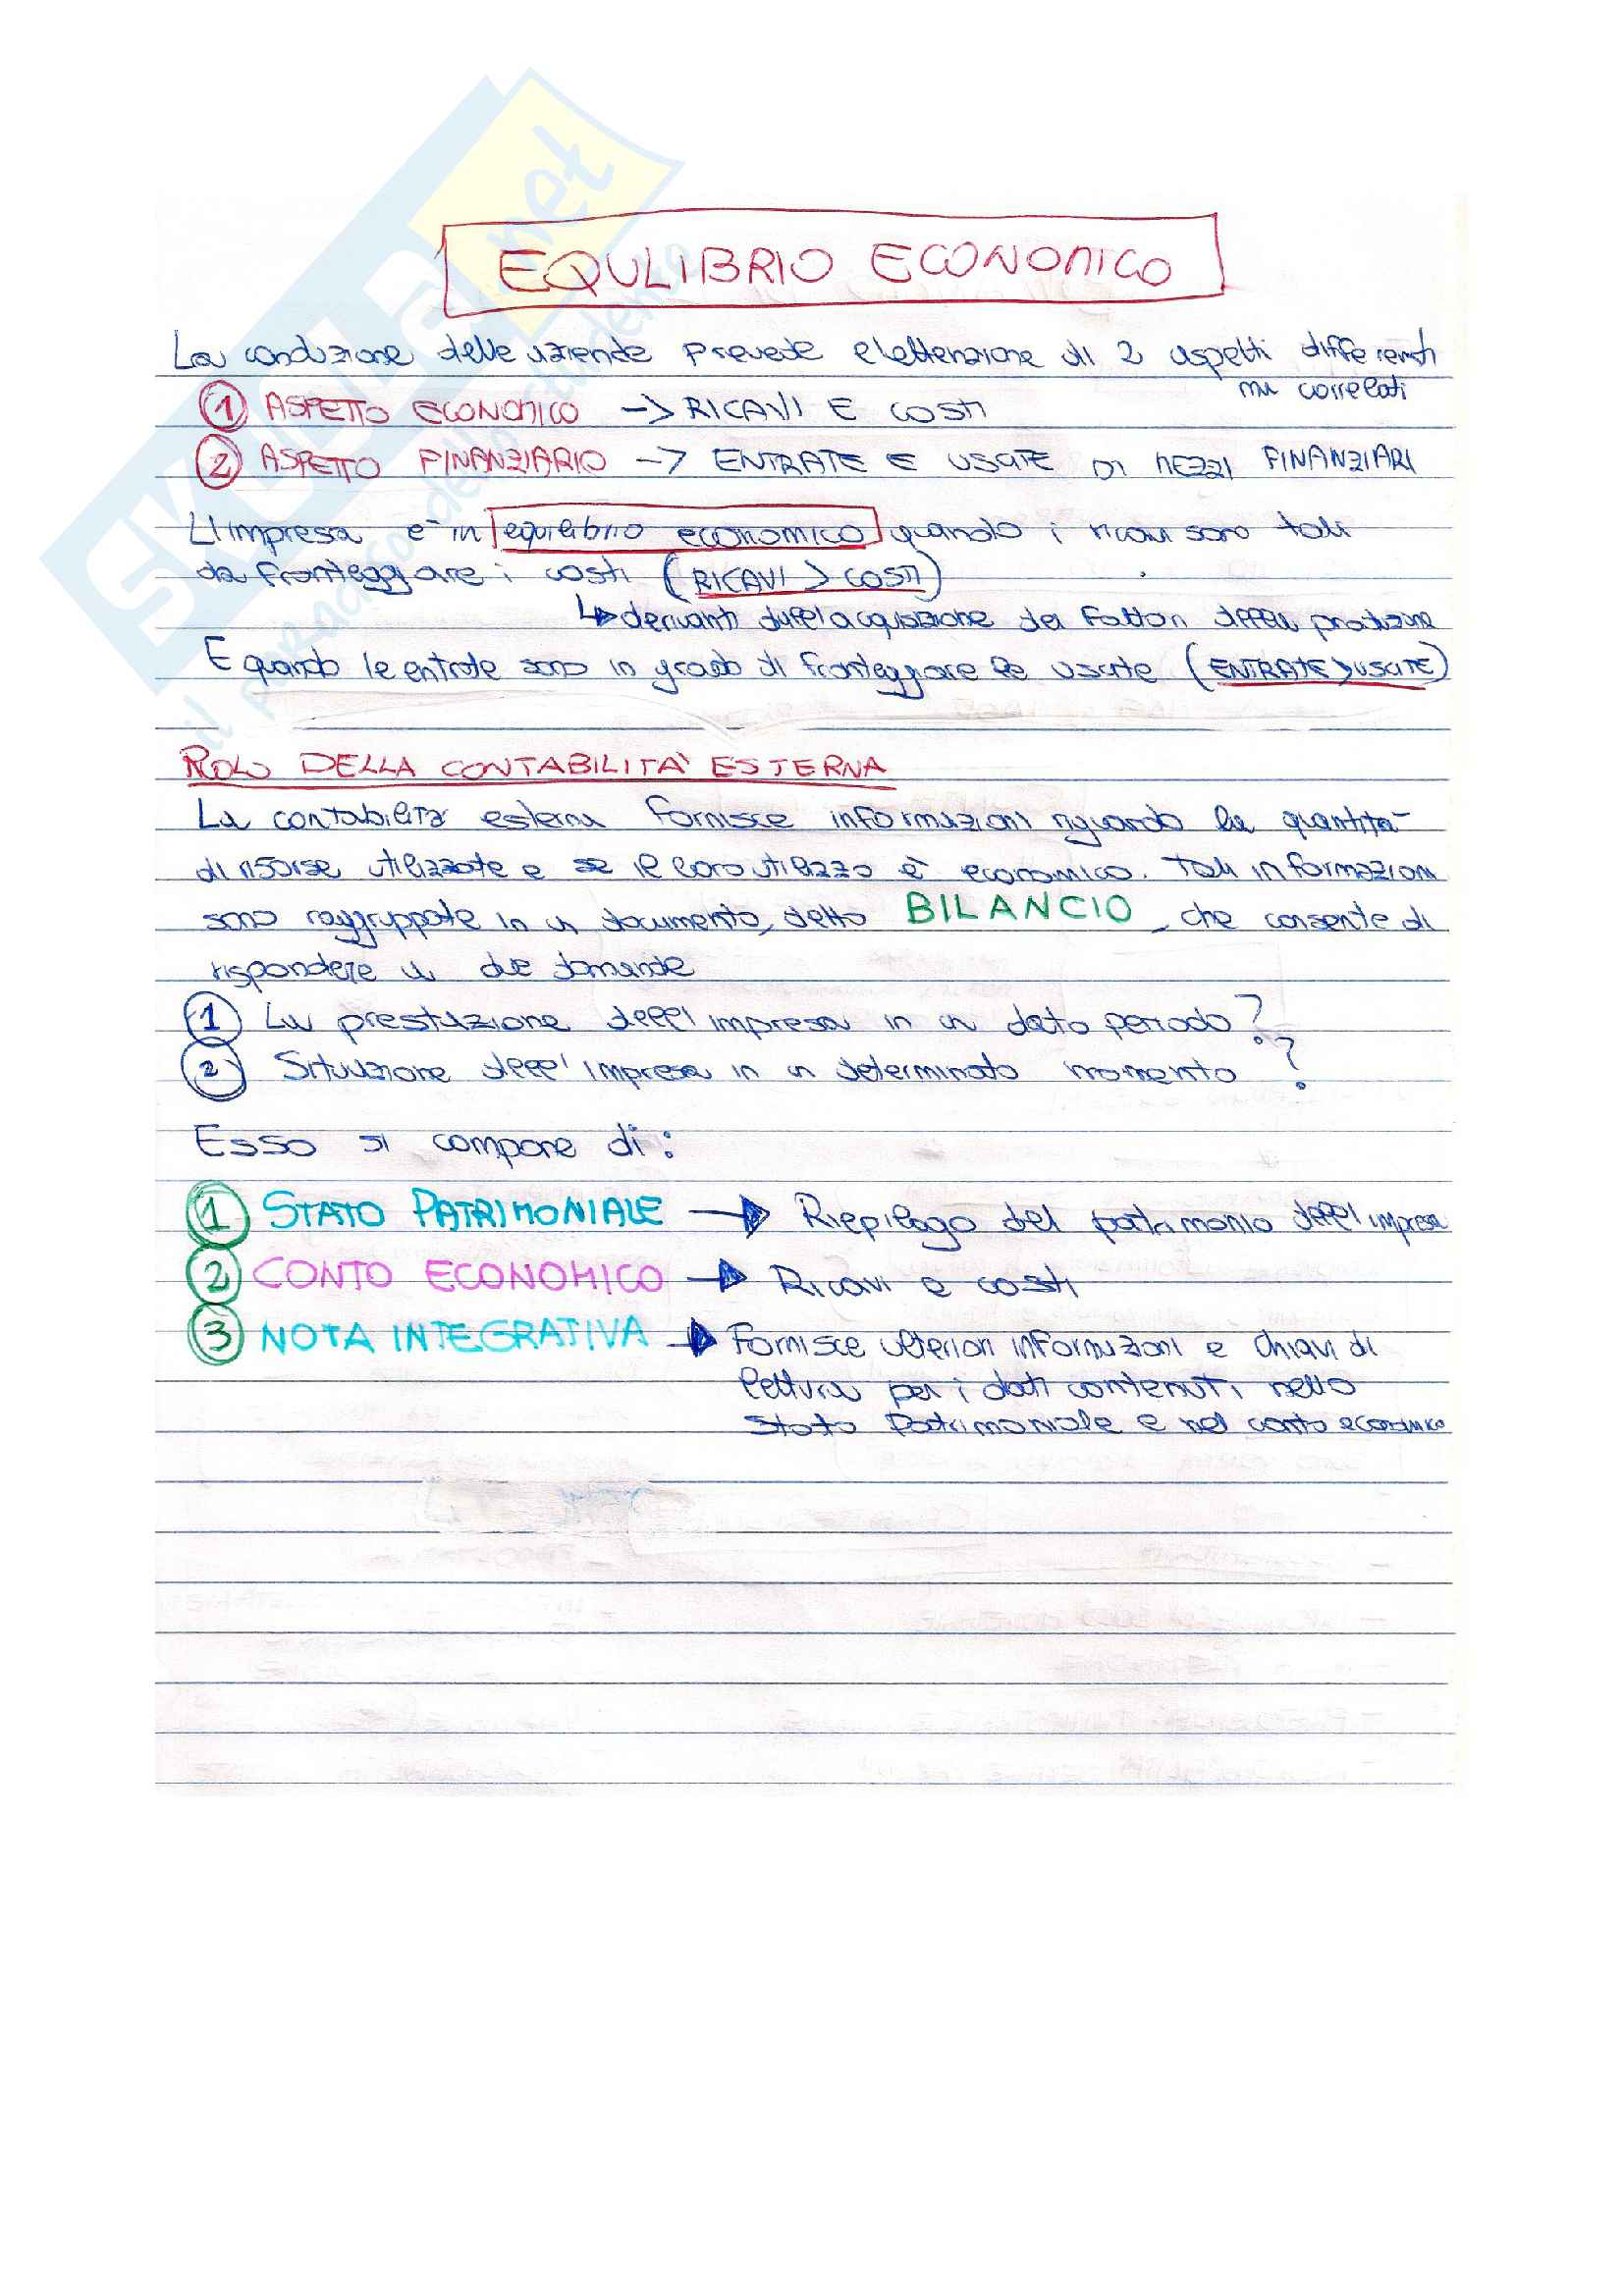 SKUOLA.net
il paradiso dello studente
EQULIBRIO ECONOMICO
La conduzione delle aziende prevede e l'attenzione di 2 aspetti differenti
ma correlati
1 ASPETTO ECONOMICO -> RICAVI E COSTI
2 ASPETTO FINANZIARIO -> ENTRATE E USCITE DI MEZZI FINANZIARI
L'impresa è in equilibrio economico quando i ricavi sono tali
da fronteggiare i costi (RICAVI > COSTI)
↳ derivanti dall'acquisizione dei fattori della produzione
E quando le entrate sono in grado di fronteggiare le uscite (ENTRATE > USCITE)
RUOLO DELLA CONTABILITA' ESTERNA
La contabilità esterna fornisce informazioni riguardo la quantità
di risorse utilizzate e se il loro utilizzo è economico. Tali informazioni
sono raggruppate in un documento, detto BILANCIO, che consente di
rispondere a due domande
1 La prestazione dell'impresa in un dato periodo?
2 Situazione dell'impresa in un determinato momento?
Esso si compone di:
1 STATO PATRIMONIALE → Riepilogo del patrimonio dell'impresa
2 CONTO ECONOMICO → Ricavi e costi
3 NOTA INTEGRATIVA → Fornisce ulteriori informazioni e chiavi di
lettura per i dati contenuti nello
Stato Patrimoniale e nel conto economico